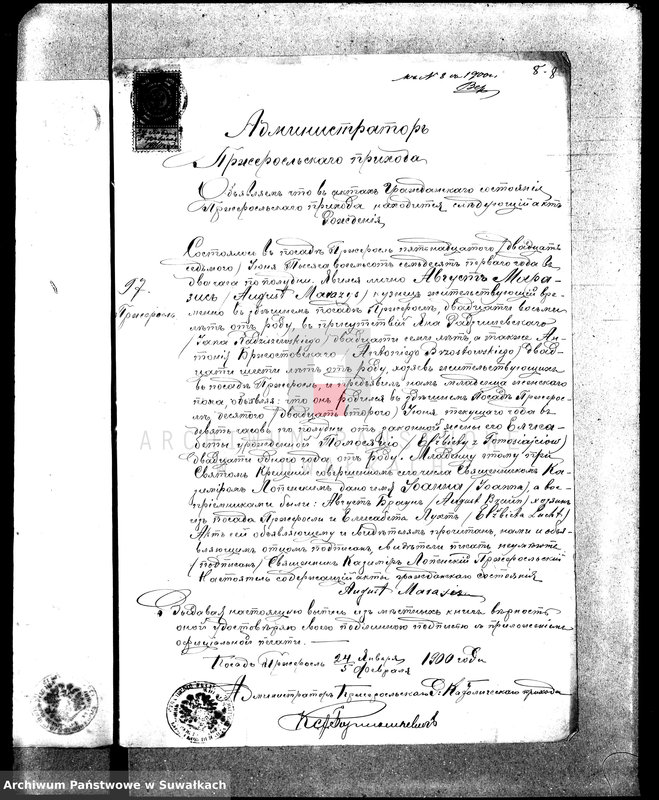 къ № 8 съ 1900 г.
8.8
Администраторъ
Пржеросльскаго прихода
Объявляемъ что въ актахъ Гражданскаго состоянія
Пржеросльскаго прихода находится слѣдующій актъ
Рожденія
97.
Пржеросль.
Состоялось въ посадѣ Пржеросль пятнадцатого /двадцать
седьмого/ Іюня тысяча восемьсотъ семьдесятъ перваго года въ
два часа пополудни. Явился лично Августъ Мака-
/August / кузнецъ жительствующій вре-
менно въ здѣшнемъ посадѣ Пржеросль, двадцати восьми
лѣтъ отъ роду, въ присутствіи Яна Радзишевскаго
/Jana Radziszewskiego/ двадцати семи лѣтъ, а также Ан-
тонія Бржостовскаго /Antoniego Brzostowskiego/ двад-
цати шести лѣтъ отъ роду, хозяевъ жительствующихъ
въ посадѣ Пржеросль и предъявилъ намъ младенца женскаго
пола, объявляя: что онъ родился въ здѣшнемъ посадѣ Пржерос-
ль, десятого /двадцать второго/ Іюня текущаго года въ
девять часовъ по полудни отъ законной жены его Елиса-
беты урожденной /Elżbiety z /
двадцати одного года отъ роду. Младенцу этому при
Святомъ Крещеніи совершенномъ сего числа Священникомъ Ка-
зиміромъ Лопенскимъ дано имя Іоанна /Joanna/ а вос-
пріемниками были: Августъ Браунъ /August / хозяинъ
изъ посада Пржеросли и Елисавета Лухтъ /Elżbieta Lucht/
Актъ сей объявляющему и свидѣтелямъ прочитанъ, нами и объя-
вляющимъ отцомъ подписанъ, свидѣтели писать неумѣютъ
/подписан/ Священникъ Казиміръ Лопенскій Пржеросльскій
Настоятель содержащій акты гражданскаго состоянія
August
Выдавая настоящую выпись изъ мѣстныхъ книгъ вѣрность
оной удостовѣряю своею подлинною подписью съ приложеніемъ
оффиціальной печати.
Посадъ Пржеросль 24 Января / 5 Февраля 1900 года
Администраторъ Пржеросльскаго Р. Католическаго прихода
Archiwum Państwowe w Suwałkach